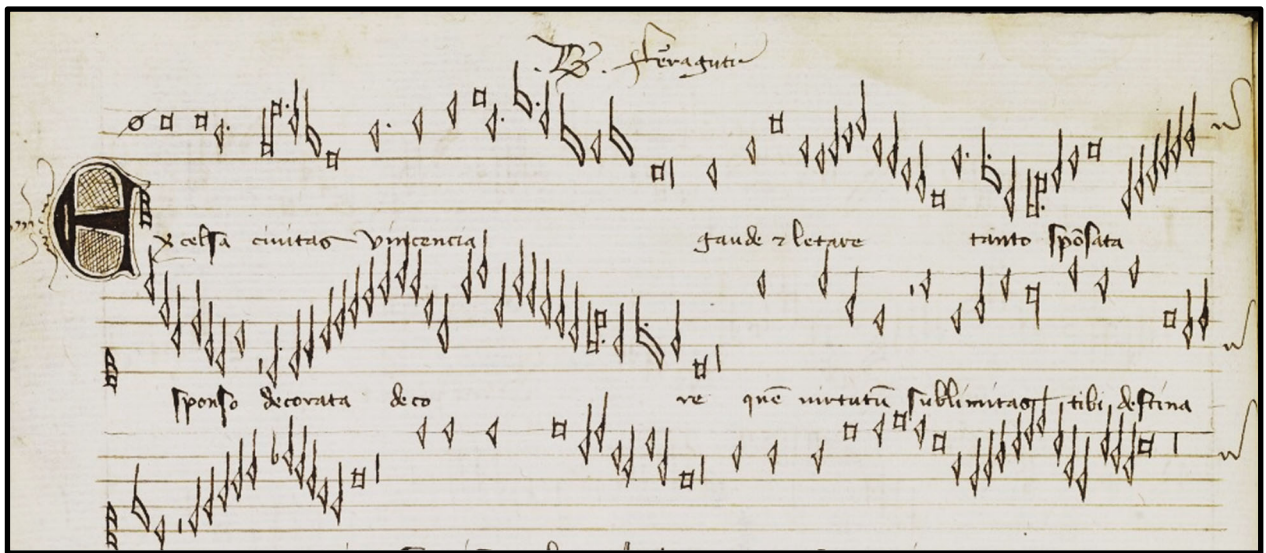 B. feragutj
Excelsa ciuitas vincencia gaude ⁊ letare tanto spōsata
sponso decorata decore quē virtutū sublimitas tibi destina